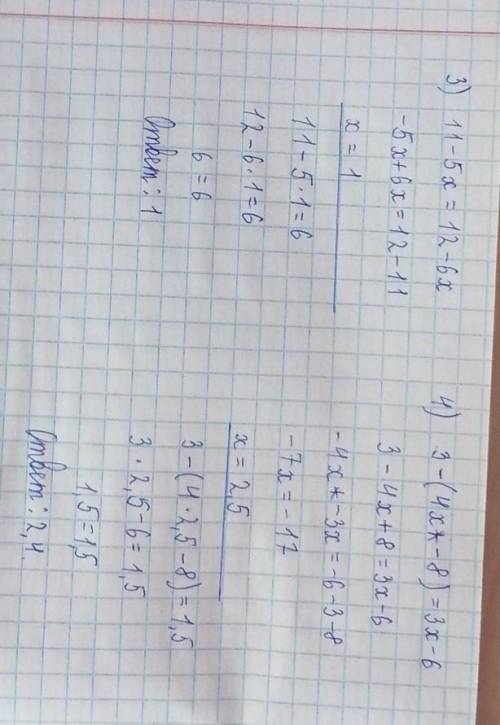 3) 11-5x=12-6x
-5x+6x=12-11
x=1
11-5·1=6
12-6·1=6
6=6
Ответ: 1
4) 3-(4x-8)=3x-6
3-4x+8=3x-6
-4x-3x=-6-3-8
-7x=-17
x=2,5
3-(4·2,5-8)=1,5
3·2,5-6=1,5
1,5=1,5
Ответ: 2,4.